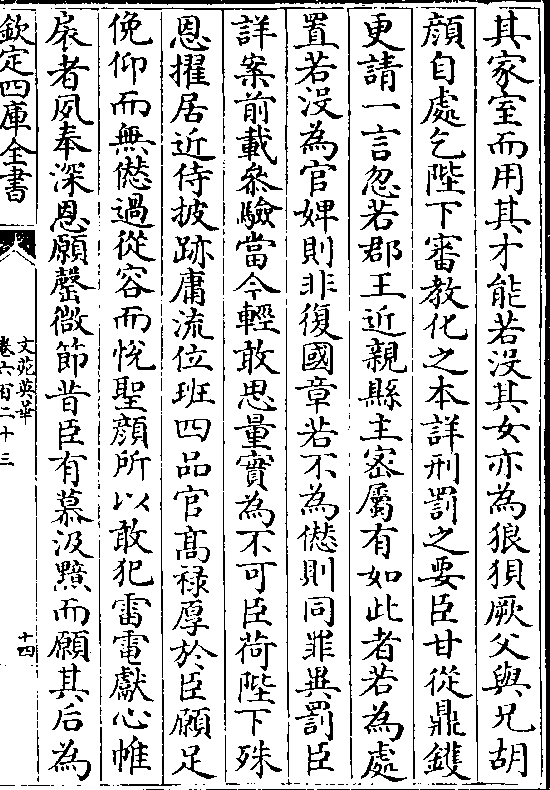 其家室而用其才能若沒其女亦為狼狽厥父與兄胡
顔自處乞陛下審教化之本詳刑罰之要臣甘從鼎鑊
更請一言忽若郡王近親縣主宻屬有如此者若為處
置若没為官婢則非復國章若不為僽則同罪異罰臣
詳案前載叅驗當今輕敢思量實為不可臣荷陛下殊
恩擢居近侍披跡庸流位班四品官髙禄厚於臣願足
俛仰而無僽過從容而恱聖顔所以敢犯雷電獻心帷
扆者夙奉深恩願罄微節昔臣有慕汲黯而願其后為
欽定四庫全書
文苑英華
卷六百二十三
十四